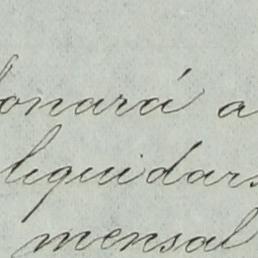 onará a
liquidars
mensal